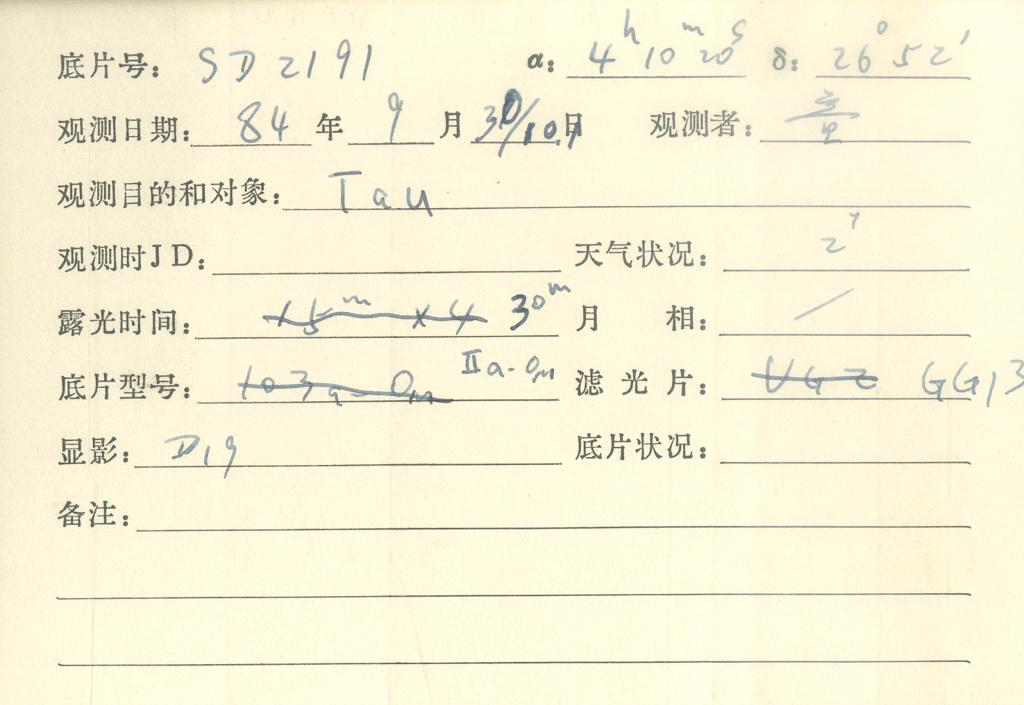 底片号: SD2191 α: 4h10m20s δ: 26°52'
观测日期: 84 年 9 月 30/10.1日 观测者: 童
观测目的和对象: Tau
观测时JD: 天气状况: 2
露光时间: 15m×4 30m 月 相: /
底片型号: 103a-O IIa-O 滤光片: UG2 GG13
显影: D19 底片状况:
备注: